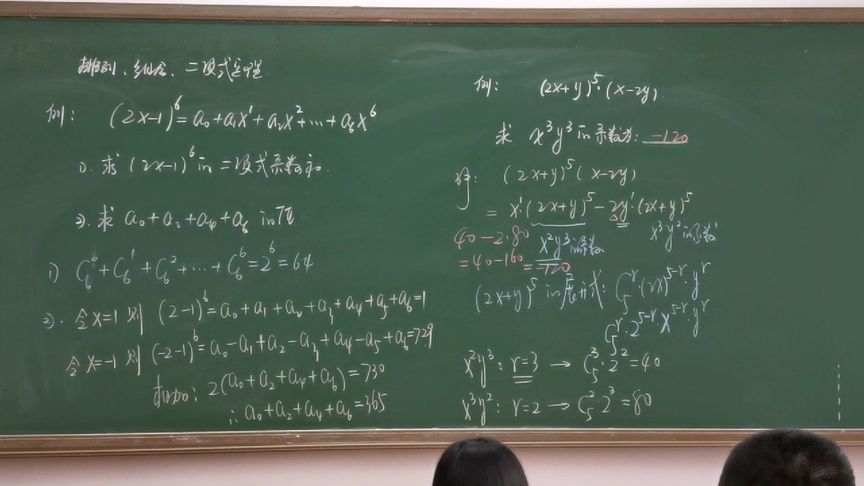 排列、组合、二项式定理
例: (2x-1)⁶=a₀+a₁x¹+a₂x²+…+a₆x⁶
1). 求(2x-1)⁶in二项式系数和.
2). 求 a₀+a₂+a₄+a₆ in值
1) C₆⁰+C₆¹+C₆²+…+C₆⁶=2⁶=64
2). 令x=1 则 (2-1)⁶=a₀+a₁+a₂+a₃+a₄+a₅+a₆=1
令x=-1 则 (-2-1)⁶=a₀-a₁+a₂-a₃+a₄-a₅+a₆=729
相加: 2(a₀+a₂+a₄+a₆)=730
∴a₀+a₂+a₄+a₆=365
例: (2x+y)⁵·(x-2y)
求 x³y³ in系数为: -120
解: (2x+y)⁵(x-2y)
=x¹·(2x+y)⁵-2y¹·(2x+y)⁵
40-2·80 x²y³in系数 x³y²in系数
=40-160=-120
(2x+y)⁵ in展开式: C₅ʳ·(2x)⁵⁻ʳ·yʳ
C₅ʳ·2⁵⁻ʳx⁵⁻ʳ·yʳ
x²y³: r=3 → C₅³·2²=40
x³y²: r=2 → C₅²·2³=80